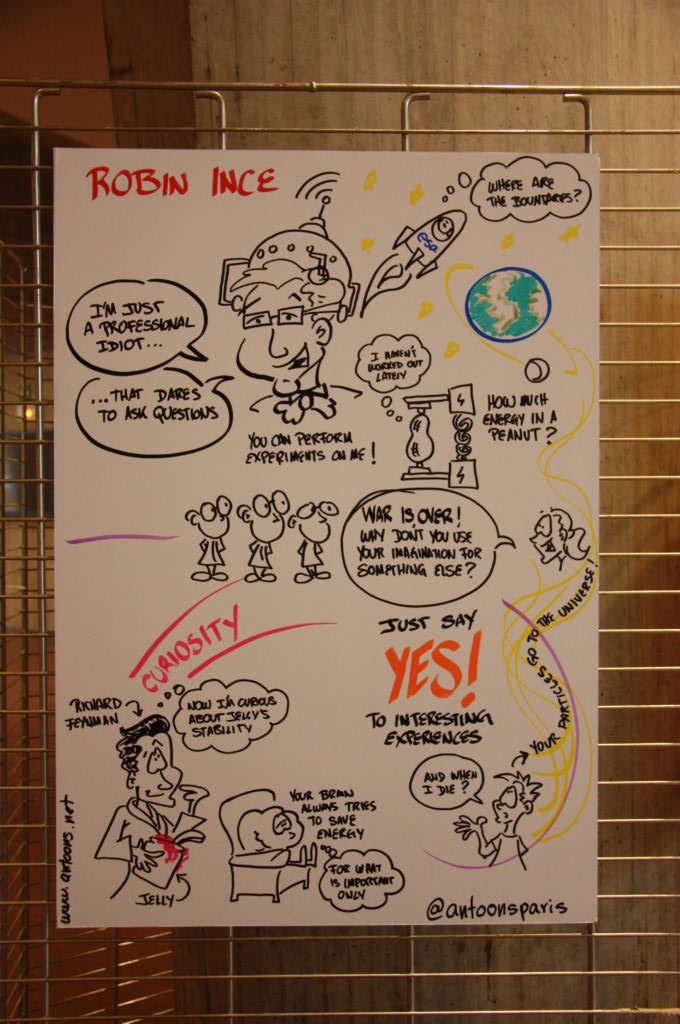 ROBIN INCE
WHERE ARE
THE BOUNTARIES?
esa
I'M JUST
A PROFESSIONAL
IDIOT...
...THAT DARES
TO ASK QUESTIONS
YOU CAN PERFORM
EXPERIMENTS ON ME!
I HAVEN'T
WORKED OUT
LATELY
HOW MUCH
ENERGY IN A
PEANUT?
WAR IS OVER!
WHY DON'T YOU USE
YOUR IMAGINATION FOR
SOMETHING ELSE?
CURIOSITY
JUST SAY
YES!
TO INTERESTING
EXPERIENCES
YOUR PARTICLES GO TO THE UNIVERSE!
AND WHEN
I DIE?
RICHARD
FEYNMAN
NOW I'M CURIOUS
ABOUT JELLY'S
STABILITY
JELLY
YOUR BRAIN
ALWAYS TRIES
TO SAVE
ENERGY
FOR WHAT
IS IMPORTANT
ONLY
www.antoons.net
@antoonsparis